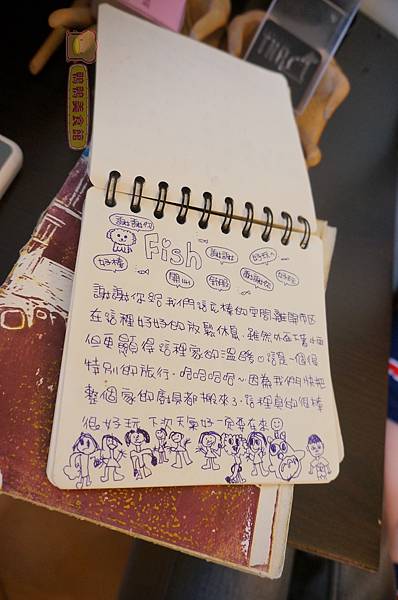 謝謝你
Fish
謝謝
好棒
開心
舒服
謝謝你
謝謝你給我們這個棒的空間,離開市區
在這裡好好的放鬆休息,雖然外面下著雨
但更顯得這裡家的溫暖 這是一個很
特別的旅行,哈哈哈哈~因為我們快把
整個家的廚具都搬來了,這裡真的很棒
很好玩 下次天氣好一定要在來